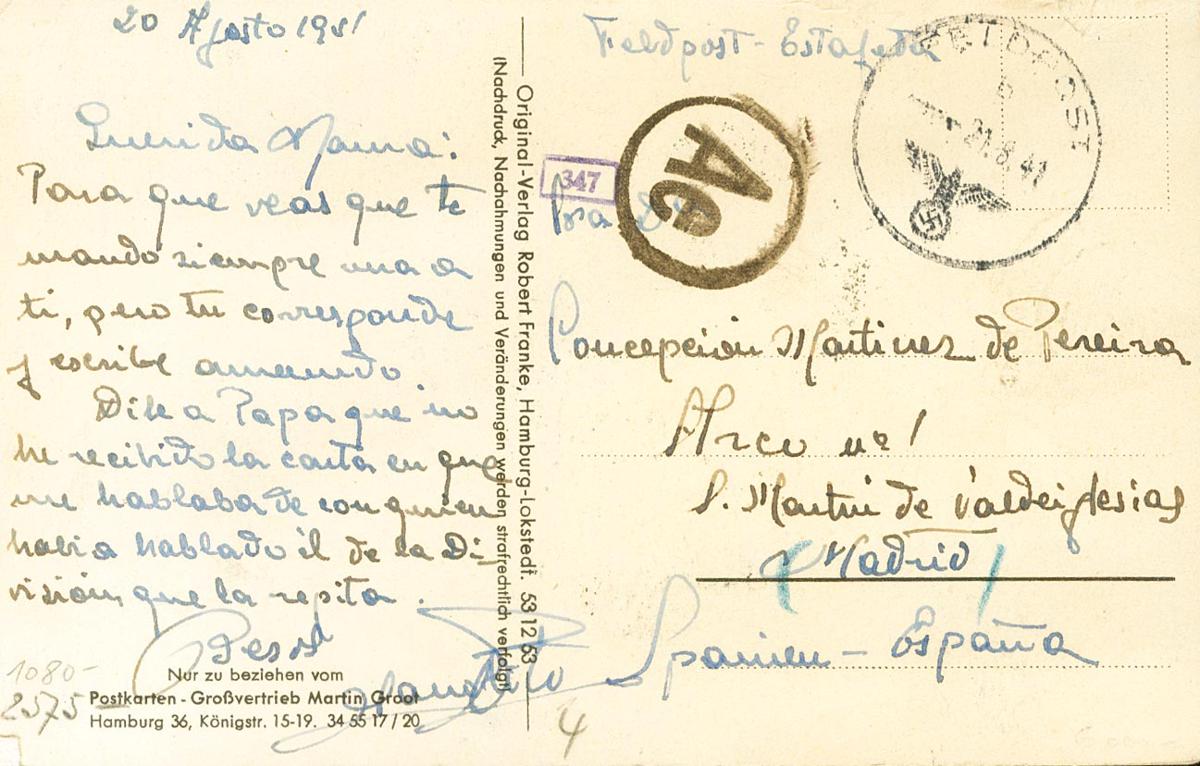 20 Agosto 1941
Querida Mama:
Para que veas que te
mando siempre una a
ti, pero tu corresponde
y escribe amenudo.
Dile a Papa que no
he recibido la carta en que
me hablaba de con quien
habia hablado él de la Di-
visión, que la repita.
Besos
Nur zu beziehen vom
Postkarten - Großvertrieb Martin Groot
Hamburg 36, Königstr. 15-19. 34 55 17 / 20
1080-
2575
Original-Verlag Robert Franke, Hamburg-Lokstedt. 53 12 53
(Nachdruck, Nachahmungen und Veränderungen werden strafrechtlich verfolgt)
Feldpost - Estafeta
FELDPOST
21.8.41
347
Ac
Concepción Martinez de Pereira
Arco nº 1
S. Martin de Valdeiglesias
(Madrid)
Spanien - España
4